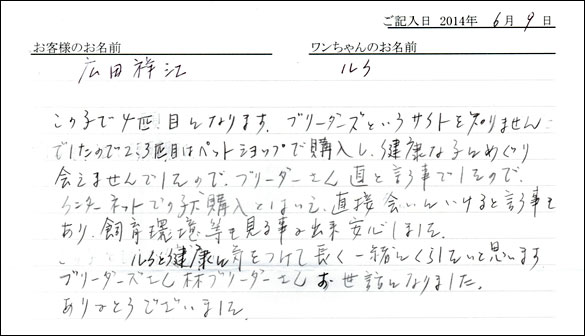 ご記入日 2014年 6月 9日
お客様のお名前 ワンちゃんのお名前
広田祥江 ルク
この子で4匹目になります。ブリーダーズというサイトを知りません
でしたので2、3匹目はペットショップで購入し、健康な子にめぐり
会えませんでしたので、ブリーダーさん直と言う事でしたので、
インターネットでの子犬購入とはいえ、直接会いにいけると言う事も
あり、飼育環境等も見る事が出来安心しました。
ルクと健康に気をつけて長く一緒にくらしたいと思います
ブリーダーズさん 林ブリーダーさん お世話になりました。
ありがとうございました。